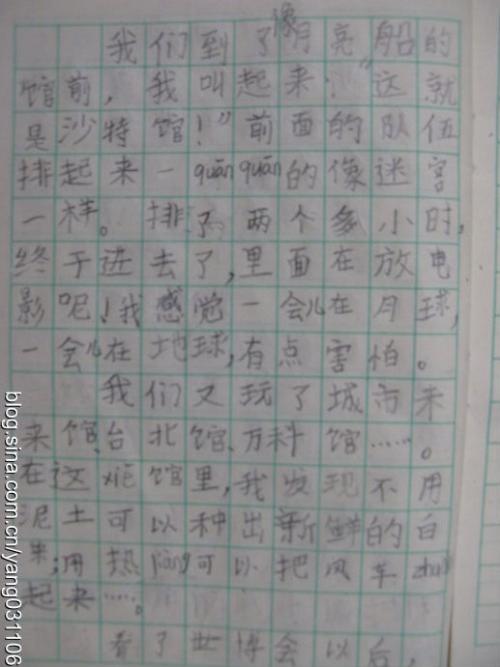 我们到了像月亮船的
馆前，我叫起来：“这就
是沙特馆！”前面的队伍
排起来一quān quān的像迷宫
一样。排了两个多小时，
终于进去了，里面在放电
影呢！我感觉一会儿在月球，
一会儿在地球，有点害怕。
我们又玩了城市未
来馆、台北馆、万科馆……。
在这xiē馆里，我发现不用
泥土可以种出新鲜的白
菜；用热jiāng可以把风车zhuàn
起来……。
看了世博会以后，
blog.sina.com.cn/yang031106